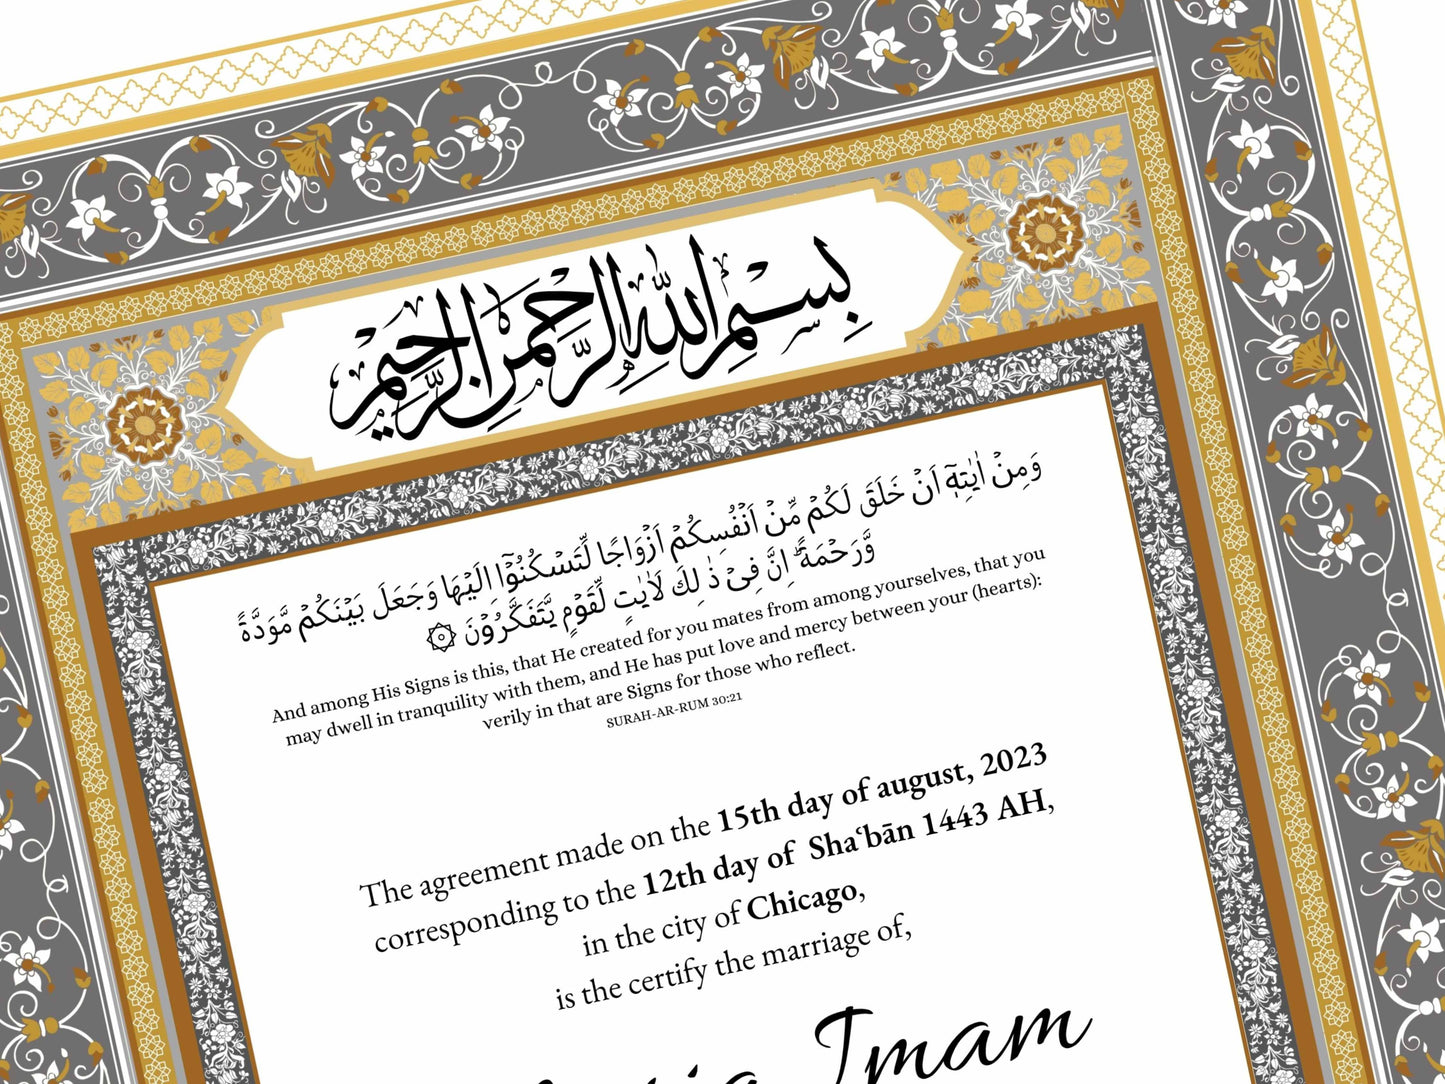 بِسْمِ اللّٰهِ الرَّحْمٰنِ الرَّحِيْمِ
وَمِنْ اٰيٰتِهٖٓ اَنْ خَلَقَ لَكُمْ مِّنْ اَنْفُسِكُمْ اَزْوَاجًا لِّتَسْكُنُوْٓا اِلَيْهَا وَجَعَلَ بَيْنَكُمْ مَّوَدَّةً
وَّرَحْمَةً ۗ اِنَّ فِيْ ذٰلِكَ لَاٰيٰتٍ لِّقَوْمٍ يَّتَفَكَّرُوْنَ ۞
And among His Signs is this, that He created for you mates from among yourselves, that you
may dwell in tranquility with them, and He has put love and mercy between your (hearts):
verily in that are Signs for those who reflect.
SURAH-AR-RUM 30:21
The agreement made on the 15th day of august, 2023
corresponding to the 12th day of Shaʿbān 1443 AH,
in the city of Chicago,
is the certify the marriage of,
Imam